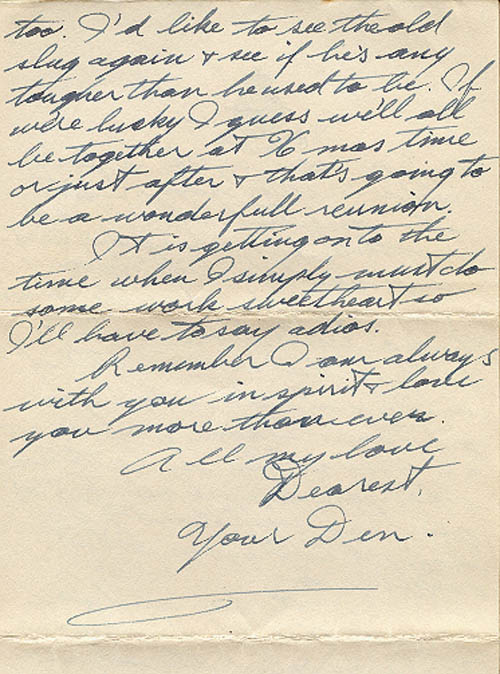 too. I'd like to see the old
slug again & see if he's any
tougher than he used to be. If
we're lucky I guess we'll all
be together at Xmas time
or just after & that's going to
be a wonderfull reunion.
It is getting on to the
time when I simply must do
some work sweetheart so
I'll have to say adios.
Remember I am always
with you in spirit & love
you more than ever.
All my love
Dearest,
Your Den.